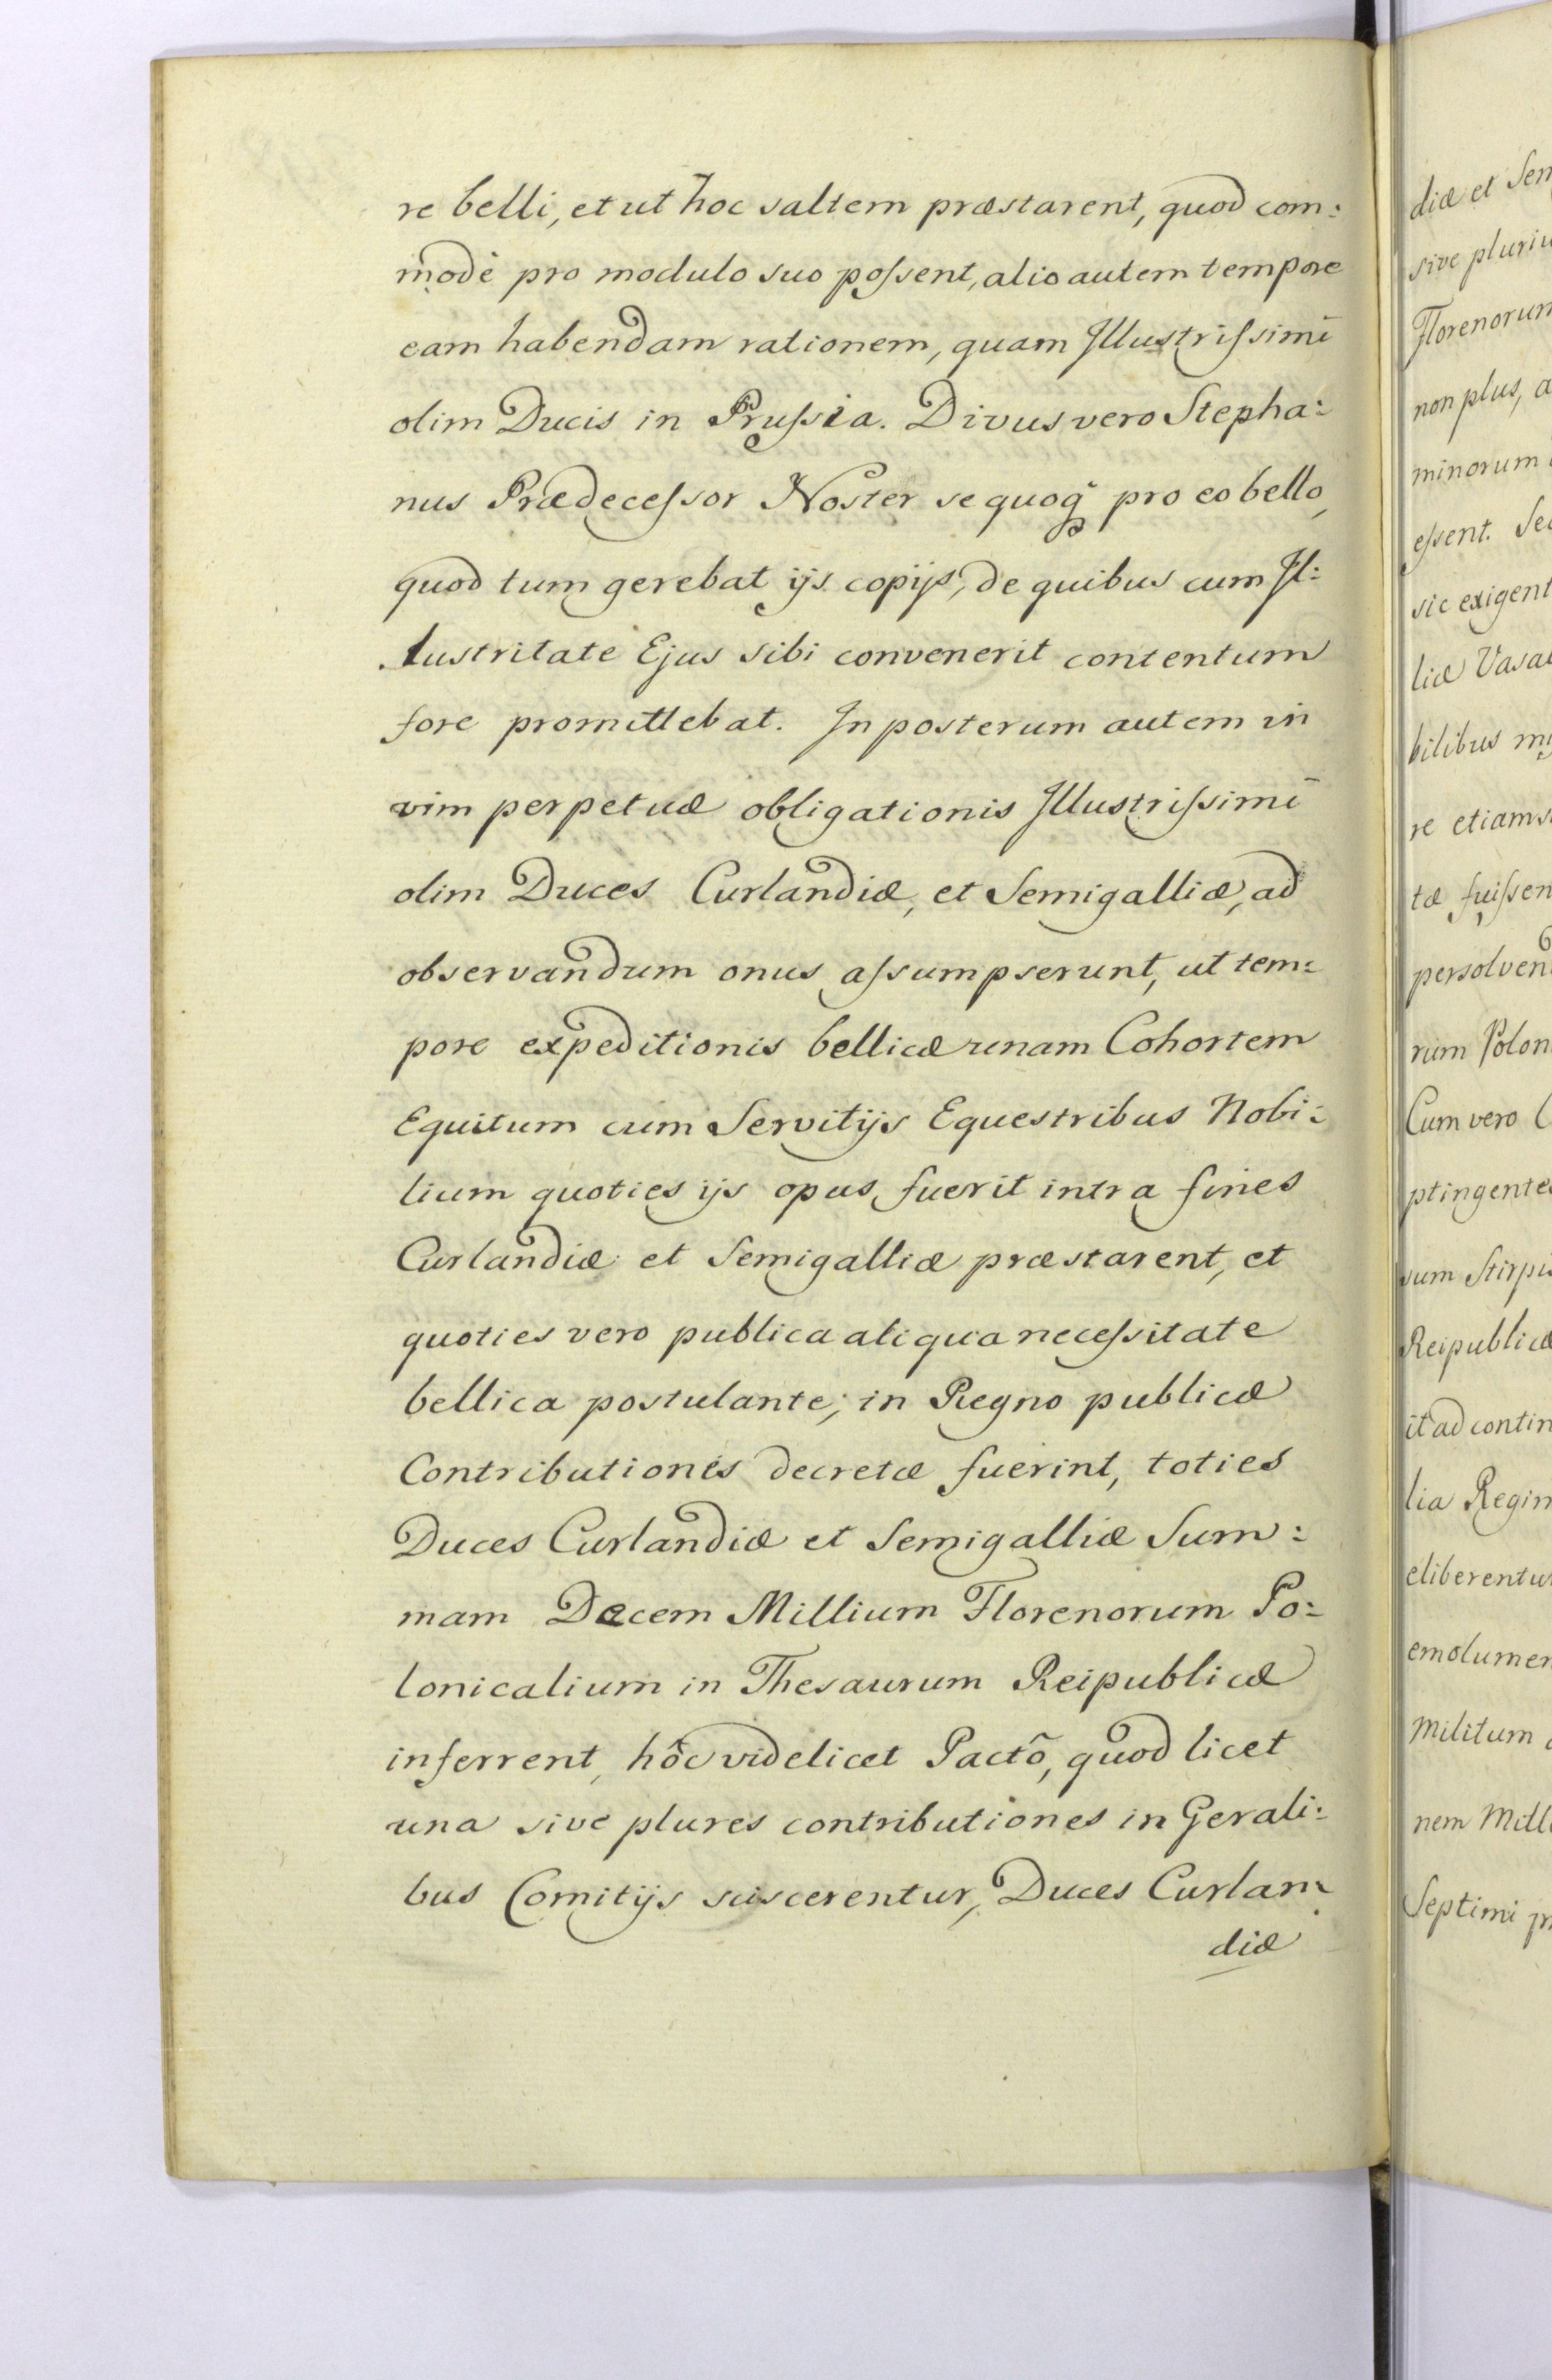 re belli, et ut hoc saltem præstarent, quod com:
modè pro modulo suo poſsent, alio autem tempore
eam habendam rationem, quam Illustriſsimi
olim Ducis in Pruſsia. Divus vero Stepha:
nus Prædeceſsor Noster se quoq pro eo bello,
quod tum gerebat ijs copijs, de quibus cum Il:
lustritate Ejus sibi convenerit contentum
fore promittebat. In posterum autem in
vim perpetuæ obligationis Illustriſsimi
olim Duces Curlandiæ, et Semigalliæ, ad
observandum onus aſsumpserunt, ut tem:
pore expeditionis bellicæ unam Cohortem
Equitum cum Servitijs Equestribus Nobi:
lium quoties ijs opus fuerit intra fines
Curlandiæ et Semigalliæ præstarent, et
quoties vero publica aliqua neceſsitate
bellica postulante, in Regno publicæ
Contributiones decretæ fuerint, toties
Duces Curlandiæ et Semigalliæ Sum:
mam Decem Millium Florenorum Po:
lonicalium in Thesaurum Reipublicæ
inferrent, hôc videlicet Pactõ, quod licet
una sive plures contributiones in Gerali:
bus Comitijs sciscerentur, Duces Curlan:
diæ
diæ et Sem
sive pluriu
Florenorum
non plus, a
minorum
eſsent. Sed
sic exigent
liæ Vasal
bilibus
re etiams
tæ fuiſsen
persolven
rum Polon
Cum vero C
ptingentes
sum Stirpis
Reipublicæ
it ad contin
lia Regim
eliberentur
emolumen
Militum
nem Mill
Septimi